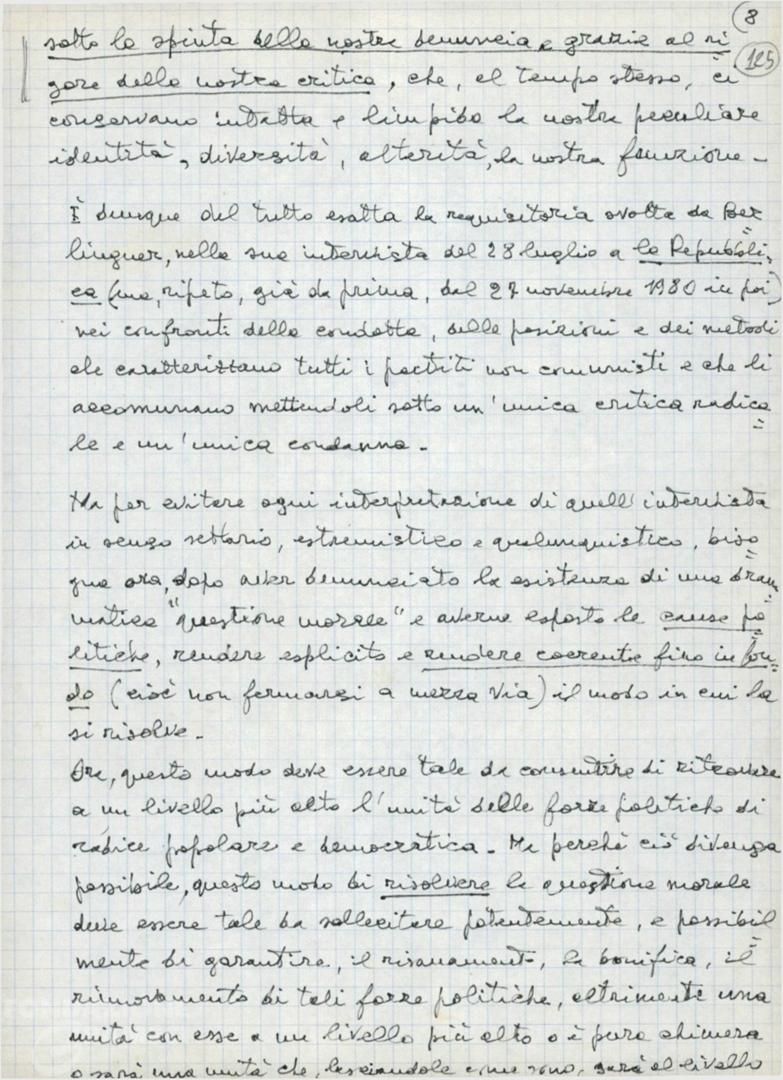 8
125
sotto la spinta della nostra denuncia e grazie al ri
gore della nostra critica, che, al tempo stesso, ci
conservano intatta e limpida la nostra peculiare
identità, diversità, alterità, la nostra funzione -
È dunque del tutto esatta la requisitoria svolta da Ber
linguer, nella sua intervista del 28 luglio a la Repubbli,
ca (ma, ripeto, già da prima, dal 27 novembre 1980 in poi)
nei confronti della condotta, delle posizioni e dei metodi
che caratterizzano tutti i partiti non comunisti e che li
accomunano mettendoli sotto un'unica critica radica
le e un'unica condanna -
Ma per evitare ogni interpretazione di quell'intervista
in senso settario, estremistico e qualunquistico, biso
gna ora, dopo aver denunciato la esistenza di una dram
matica "questione morale" e averne esposto le cause po
litiche, rendere esplicito e rendere coerente fino in fon
do (cioè non fermarsi a mezza via) il modo in cui la
si risolve -
Ora, questo modo deve essere tale da consentire di ritrovare
a un livello più alto l'unità delle forze politiche di
radice popolare e democratica - Ma perché ciò divenga
possibile, questo modo di risolvere la questione morale
deve essere tale da sollecitare potentemente, e possibil
mente di garantire, il risanamento, la bonifica, il
rinnovamento di tali forze politiche, altrimenti una
unità con esse a un livello più alto o è pura chimera
o sarà una unità che, lasciandole come sono, sarà al livello